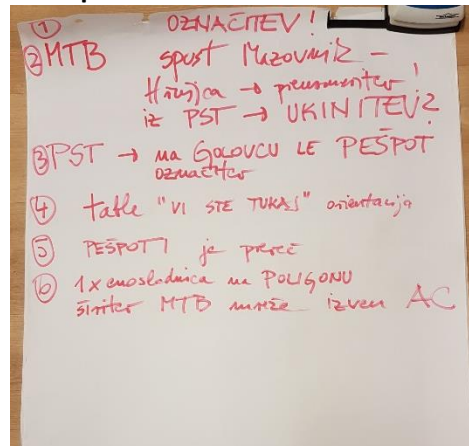 ① OZNAČITEV!
② MTB spust Mazovnik –
Hrušica → preusmeritev!
iz PST → UKINITEV?
③ PST → na GOLOVCU LE PEŠPOT
označitev
④ table "VI STE TUKAJ" orientacija
⑤ PEŠPOTI je preveč
⑥ 1x enoslednica na POLIGONU
širitev MTB mreže izven AC